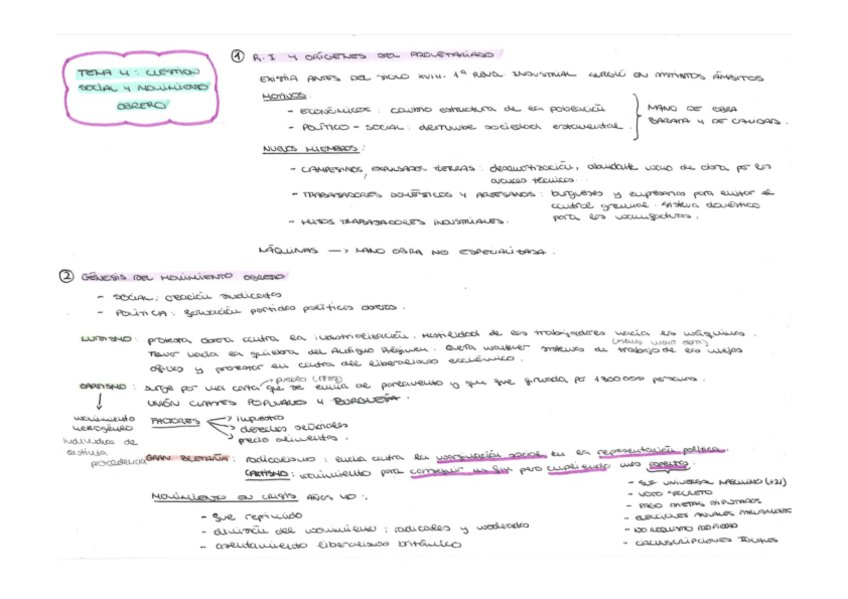 TEMA 4: CUESTION
SOCIAL Y MOVIMIENTO
OBRERO
① R.I Y ORÍGENES DEL PROLETARIADO
EXISTÍA ANTES DEL SIGLO XVIII. 1ª REVO. INDUSTRIAL SURGIÓ EN DISTINTOS ÁMBITOS
MOTIVOS:
- ECONÓMICOS: cambio estructura de la población
- POLÍTICO-SOCIAL: derrumbe sociedad estamental.
MANO DE OBRA
BARATA Y DE CALIDAD.
NUEVOS MIEMBROS:
- CAMPESINOS, EXPULSADOS TIERRAS: desamortización, abundante mano de obra por los
avances técnicos...
- TRABAJADORES DOMÉSTICOS Y ARTESANOS: burgueses y empresarios para evitar el
control gremial. Sistema doméstico
para las manufacturas.
- HIJOS TRABAJADORES INDUSTRIALES.
MÁQUINAS —> MANO OBRA NO ESPECIALIZADA.
② GÉNESIS DEL MOVIMIENTO OBRERO
- SOCIAL: creación sindicatos
- POLÍTICA: formación partidos políticos obreros.
LUDISMO: protesta obrera contra la industrialización. Hostilidad de los trabajadores hacia las máquinas.
(menos mano obra)
Temor hacia la quiebra del Antiguo Régimen. Quería mantener sistemas de trabajo de los viejos
oficios y protestar en contra del liberalismo económico.
pueblo (1838)
CARTISMO: surge por una carta que se envía al parlamento y que fue firmada por 1300000 personas.
UNIÓN CLASES POPULARES Y BURGUESÍA.
movimiento
heterogéneo
individuos de
distinta
procedencia
FACTORES
impuestos
derechos señoriales
precio alimentos.
GRAN BRETAÑA: radicalismo: lucha contra la marginación social en la representación política.
CARTISMO: movimiento para conseguir un fin pero cumpliendo unos
- SUF. UNIVERSAL MASCULINO (+21)
- VOTO SECRETO
- PAGO DIETAS DIPUTADOS
- ELECCIONES ANUALES PARLAMENTO
- NO REQUISITO PROPIEDAD
- CIRCUNSCRIPCIONES IGUALES
MOVIMIENTO EN CRISIS AÑOS 40:
- fue reprimido
- división del movimiento: radicales y moderados
- asentamiento liberalismo británico